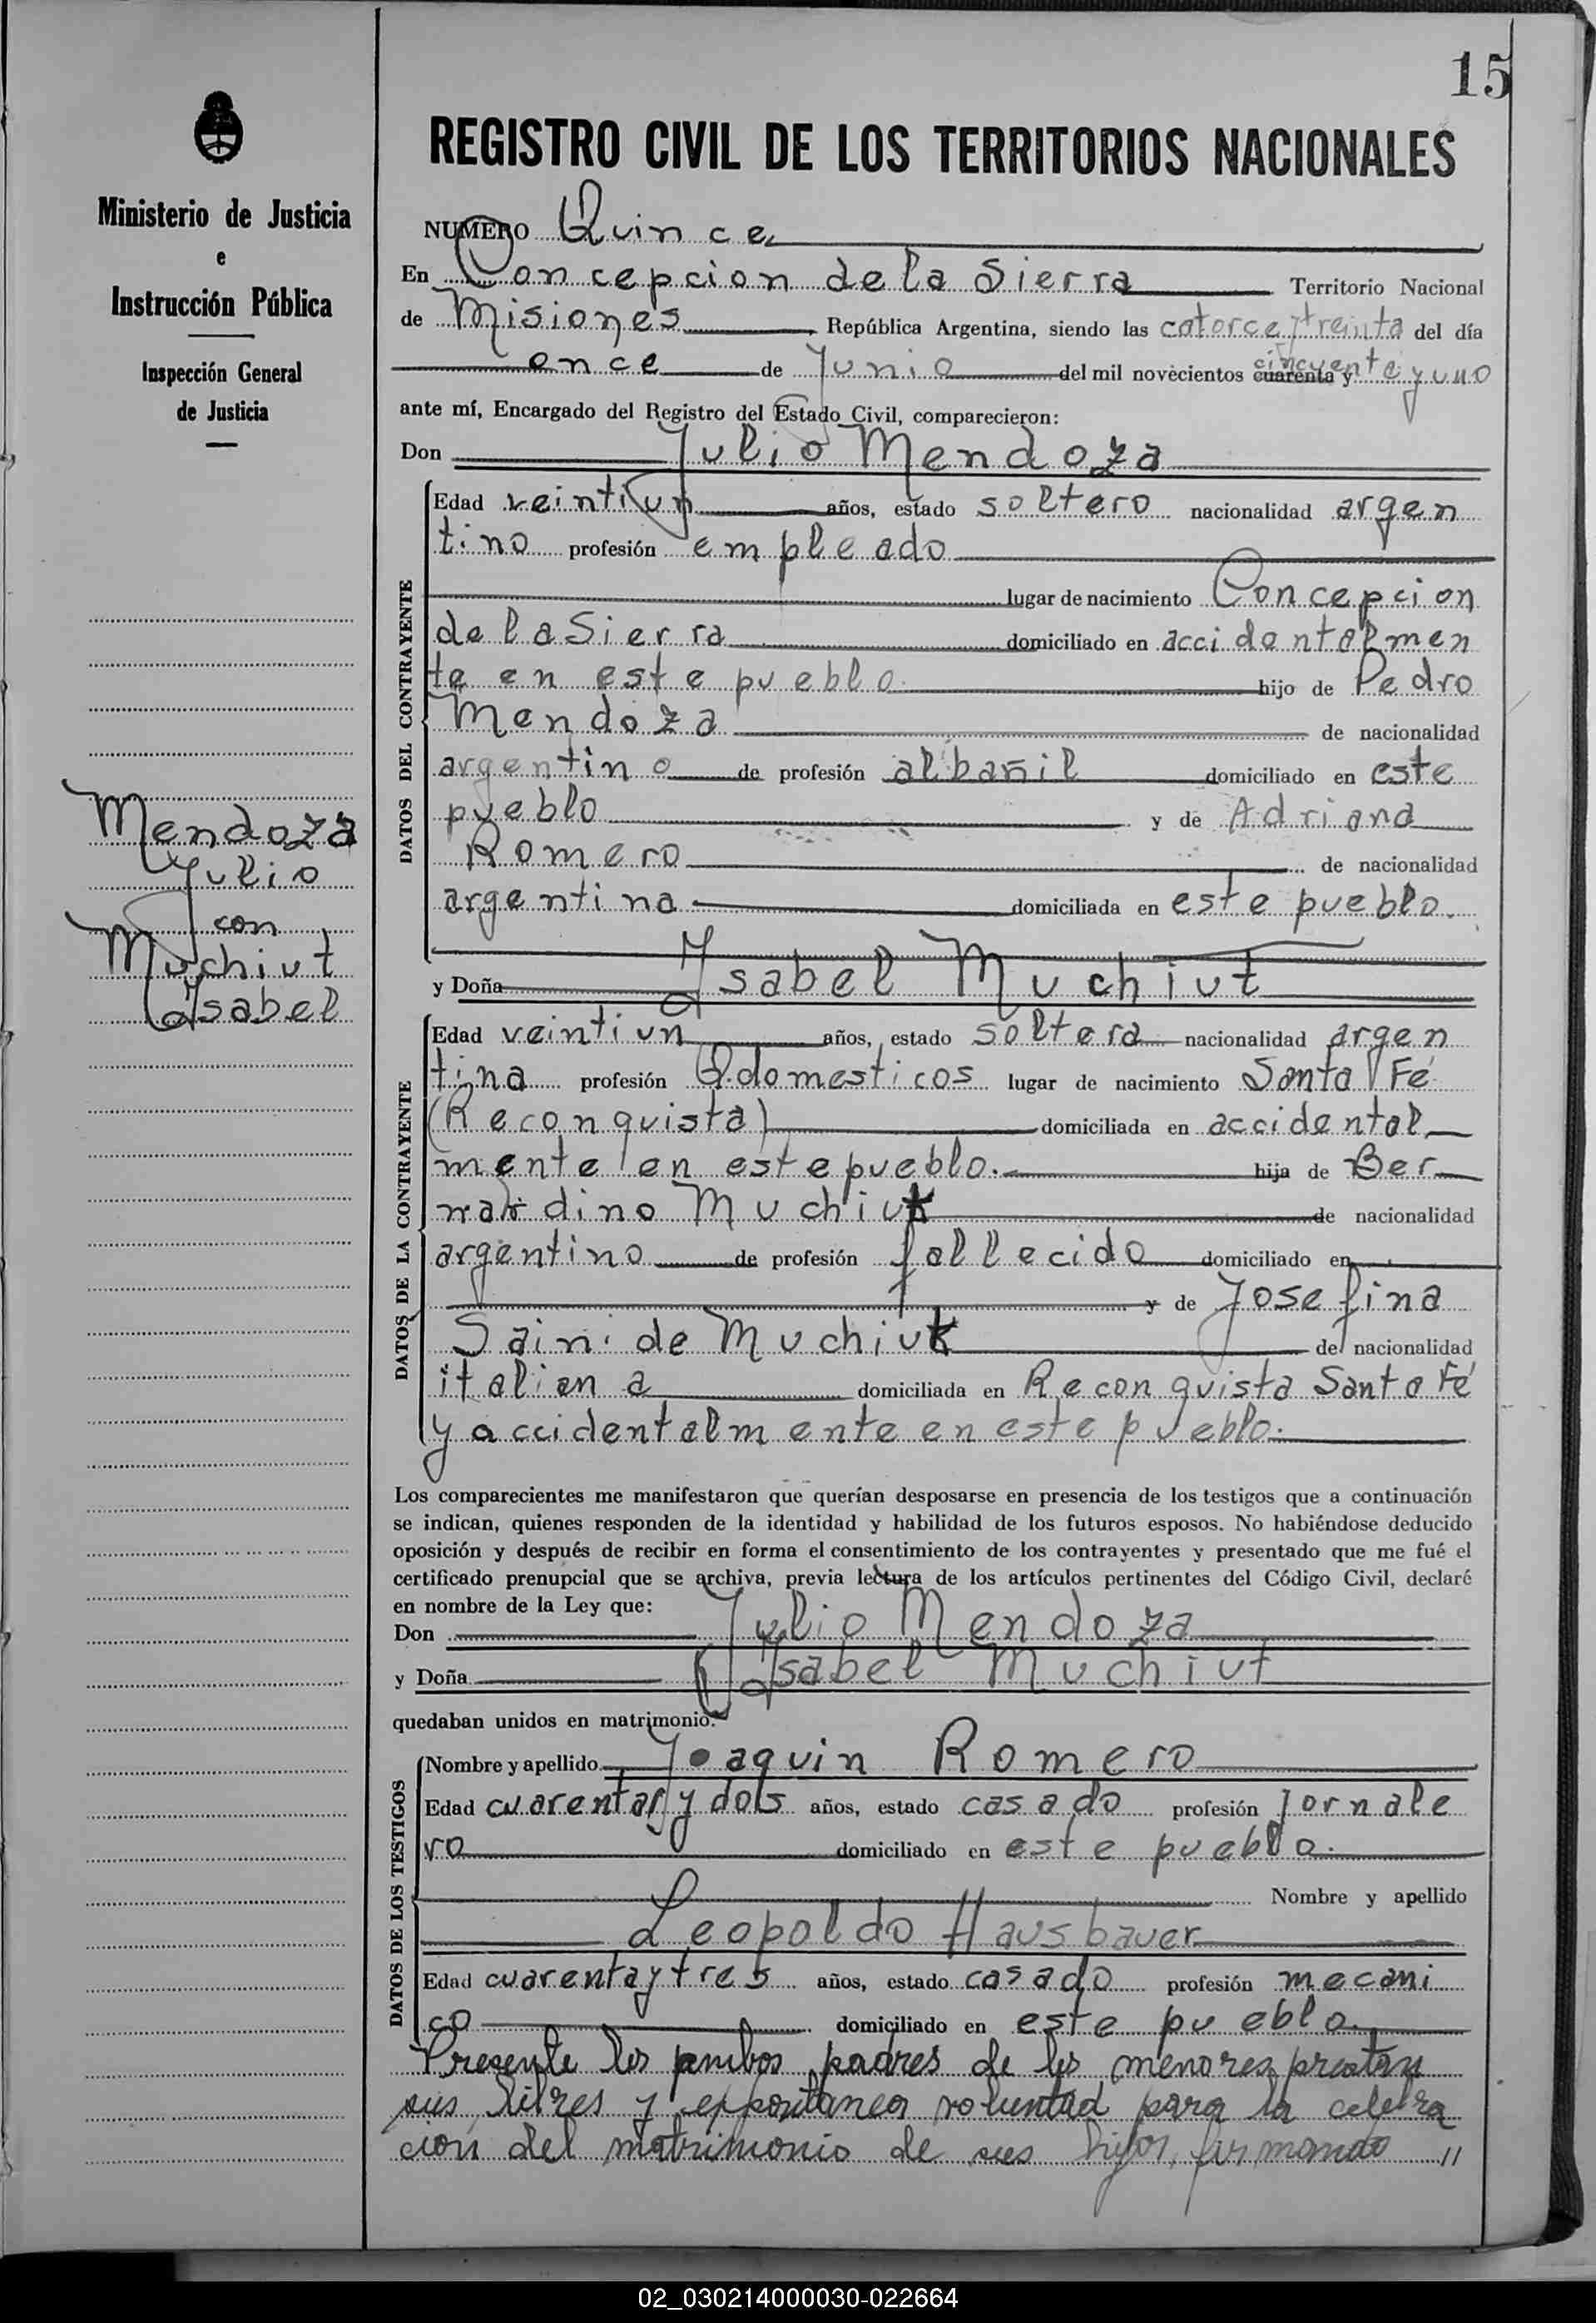 15
REGISTRO CIVIL DE LOS TERRITORIOS NACIONALES
Ministerio de Justicia
e
Instrucción Pública
Inspección General
de Justicia
Mendoza
Julio
con
Muchiut
Isabel
NUMERO Quince
En Concepcion de la Sierra Territorio Nacional
de Misiones República Argentina, siendo las catorce y treinta del día
once de Junio del mil novecientos cuarenta y cincuenta y uno
ante mí, Encargado del Registro del Estado Civil, comparecieron:
Don Julio Mendoza
DATOS DEL CONTRAYENTE
Edad veintiun años, estado soltero nacionalidad argen
tino profesión empleado
lugar de nacimiento Concepcion
de la Sierra domiciliado en accidentalmen
te en este pueblo hijo de Pedro
Mendoza de nacionalidad
argentino de profesión albañil domiciliado en este
pueblo y de Adriana
Romero de nacionalidad
argentina domiciliada en este pueblo.
y Doña Isabel Muchiut
DATOS DE LA CONTRAYENTE
Edad veintiun años, estado soltera nacionalidad argen
tina profesión Q. domesticos lugar de nacimiento Santa Fé
(Reconquista) domiciliada en accidental
mente en este pueblo. hija de Ber
nardino Muchiut de nacionalidad
argentino de profesión fallecido domiciliado en
y de Josefina
Saini de Muchiut de nacionalidad
italiana domiciliada en Reconquista Santa Fé
y accidentalmente en este pueblo.
Los comparecientes me manifestaron que querían desposarse en presencia de los testigos que a continuación
se indican, quienes responden de la identidad y habilidad de los futuros esposos. No habiéndose deducido
oposición y después de recibir en forma el consentimiento de los contrayentes y presentado que me fué el
certificado prenupcial que se archiva, previa lectura de los artículos pertinentes del Código Civil, declaré
en nombre de la Ley que:
Don Julio Mendoza
y Doña Isabel Muchiut
quedaban unidos en matrimonio.
DATOS DE LOS TESTIGOS
Nombre y apellido Joaquin Romero
Edad cuarenta y dos años, estado casado profesión Jornale
ro domiciliado en este pueblo.
Nombre y apellido
Leopoldo Hausbauer
Edad cuarenta y tres años, estado casado profesión mecani
co domiciliado en este pueblo.
Presente los ambos padres de los menores prestan
sus libres y espontanea voluntad para la celebra
cion del matrimonio de sus hijos, firmando //
02_030214000030-022664